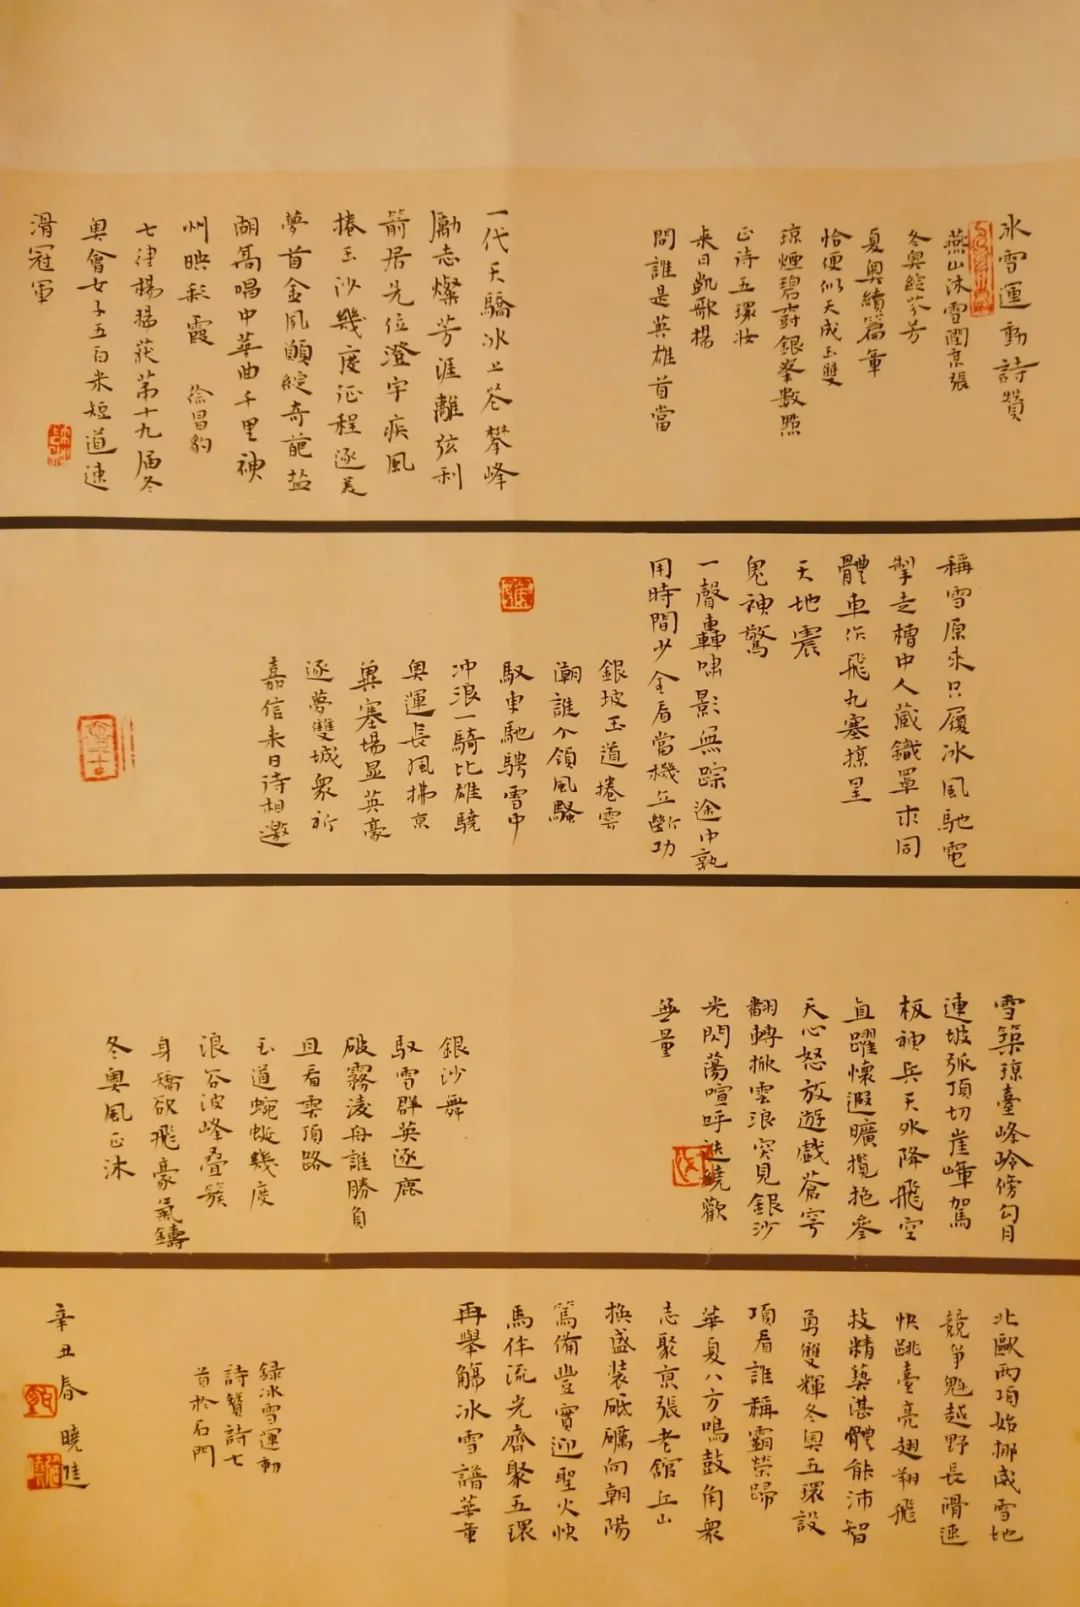 冰雪運動詩贊
燕山沐雪潤京張
冬奧綻芬芳
夏奧續篇章
恰便似天成玉雙
瓊煙碧霄銀峯數點
正詩五環妝
來日凱歌揚
問誰是英雄首當
一代天驕冰上花攀峰
勵志燦芳涯離弦利
箭居先位澄宇疾風
捲玉沙幾度征程逐美
夢首金凤願綻奇葩盐
湖高唱中華曲千里神
州映彩霞 徐昌豹
七律楊揚获第十九届冬
奧會女子五百米短道速
滑冠軍
稱雪原來只履冰風馳電
掣走槽中人藏鐵罩求同
體車作飛丸塞摸星
天地震
鬼神驚
一聲轟嘯影無踪途中孰
用時間少全看當機立斷功
銀坡玉道捲雲
潮誰个領風騷
馭東馳騁雪中
冲浪一騎比雄驍
奥運長風拂京
冀塞場显英豪
逐夢雙城衆祈
嘉信来日待相邀
雪築琼臺峰岭傍勾月
連坡弧頂切崖嶂駕
板神兵天外降飛空
直躍懷遐曠攬抱参
天心怒放遊戲蒼穹
翻轉掀雲浪突見銀沙
光閃蕩喧呼迭繞歡
無量
銀沙舞
馭雪群英逐鹿
破霧凌舟誰勝負
且看雲頂路
玉道蜿蜒幾度
浪谷波峰叠簇
身矯欲飛豪氣鑄
冬奧風正沐
北歐两項始挪威雪地
競争魁越野長滑速
快跳臺亮翅翔飛
技精藝湛體能沛智
勇雙輝冬奥五環設
項看誰稱霸榮歸
華夏八方鳴鼓角衆
志聚京張老舘丘山
换盛装砥礪向朝陽
篤備豐實迎聖火快
馬伴流光齊聚五環
再舉觞冰雪譜華章
録冰雪運動
詩贊詩七
首於石門
辛丑春曉進